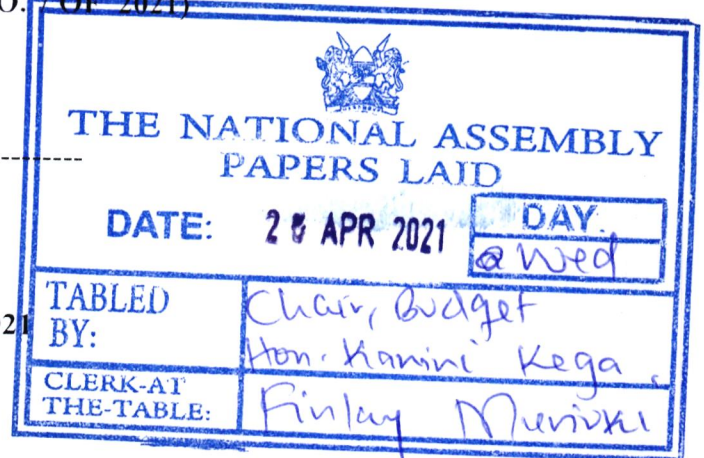 O. 7 OF 2021)
THE NATIONAL ASSEMBLY
PAPERS LAID
DATE: 28 APR 2021 DAY.
Wed
21
TABLED BY: Chair, Budget
Hon. Kanini Kega
CLERK-AT
THE-TABLE: Finlay Muriuki